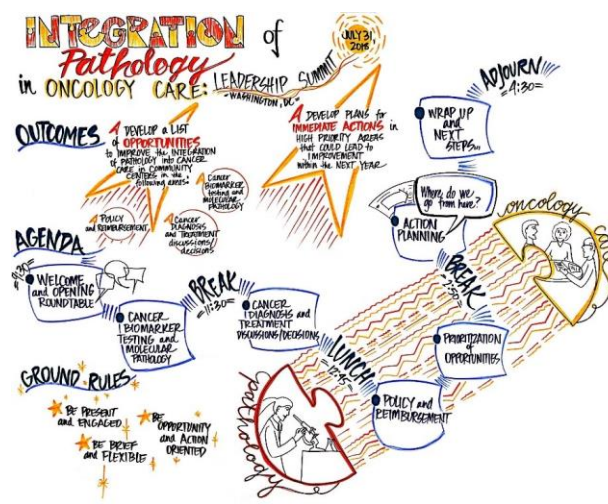 INTEGRATION of
Pathology
in ONCOLOGY CARE: LEADERSHIP SUMMIT
"WASHINGTON, DC"
JULY 31
2018
OUTCOMES
A DEVELOP A LIST
of OPPORTUNITIES
to IMPROVE the INTEGRATION
of PATHOLOGY into CANCER
CARE in COMMUNITY
CENTERS in the
following areas:
Policy
and REIMBURSEMENT
Cancer
DIAGNOSIS
and TREATMENT
discussions/
decisions
Cancer
BIOMARKER
testing and
MOLECULAR
PATHOLOGY
A DEVELOP PLANS for
IMMEDIATE ACTIONS in
HIGH PRIORITY AREAS
that COULD LEAD to
IMPROVEMENT
within the NEXT YEAR
AGENDA
=9:30=
WELCOME
and OPENING
ROUNDTABLE
CANCER
BIOMARKER
TESTING and
MOLECULAR
PATHOLOGY
BREAK
=11:30=
CANCER
DIAGNOSIS and
TREATMENT
DISCUSSIONS/DECISIONS
LUNCH
=12:45=
POLICY and
REIMBURSEMENT
PRIORITIZATION
of
OPPORTUNITIES
BREAK
=2:50=
ACTION
PLANNING
Where do we
go from here?
WRAP UP
and
NEXT
STEPS...
ADJOURN
=4:30=
oncology care
pathology
GROUND RULES
BE PRESENT
and ENGAGED
BE BRIEF
and FLEXIBLE
BE
OPPORTUNITY
and ACTION
ORIENTED